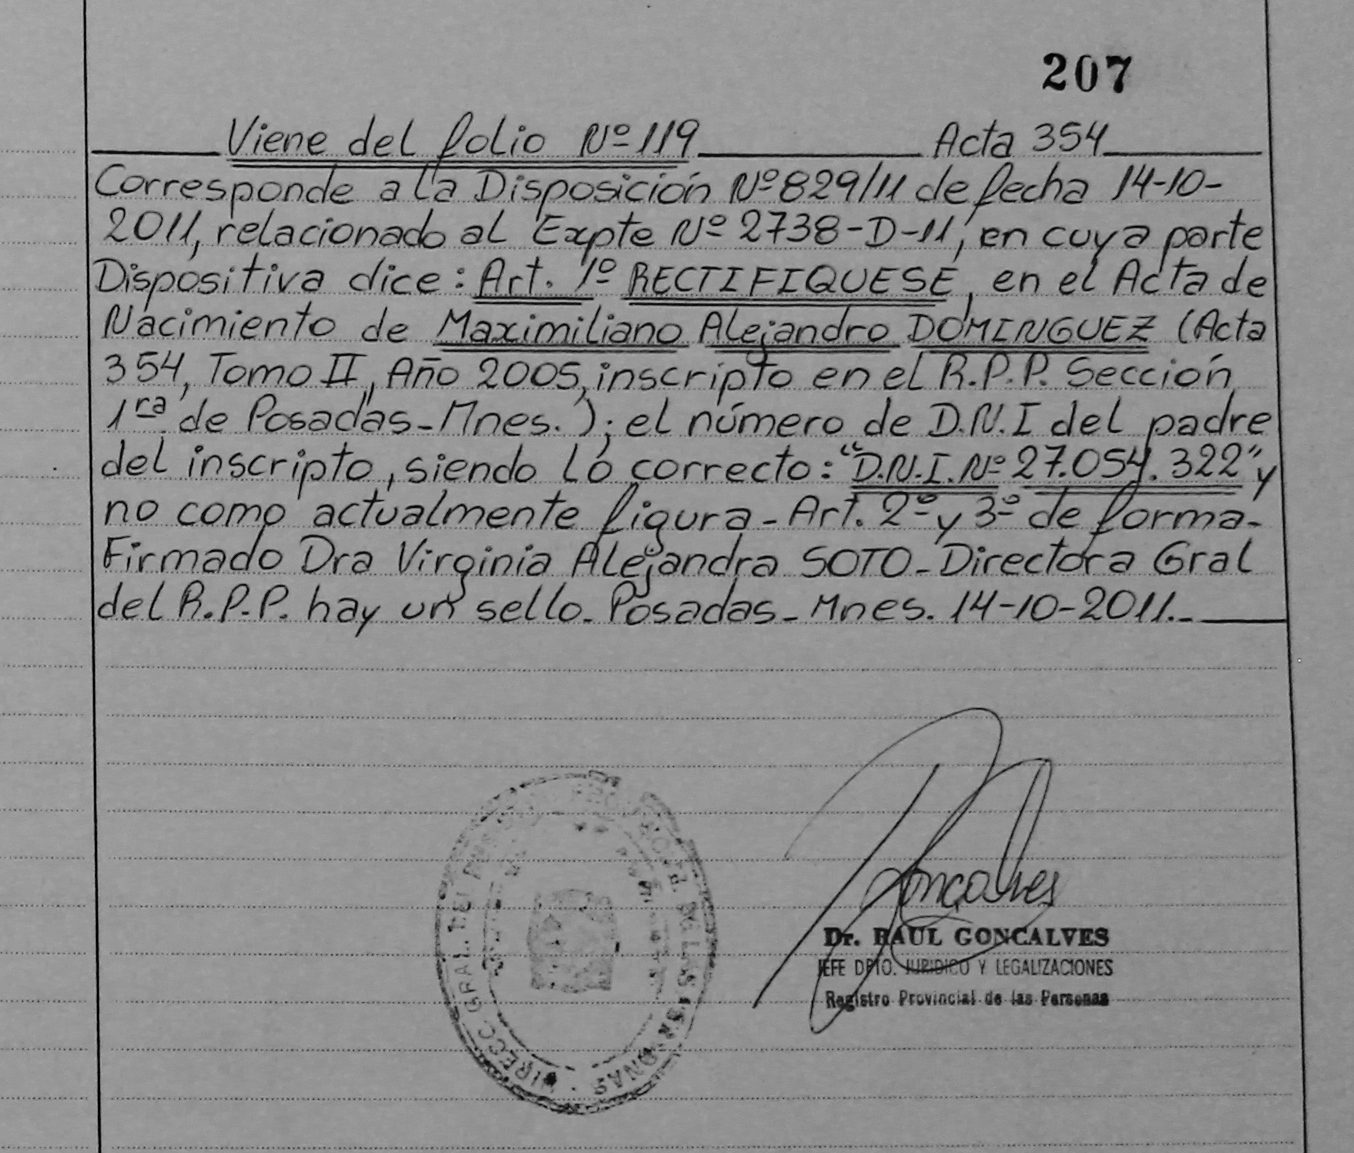 207
Viene del folio Nº 119 Acta 354
Corresponde a la Disposición Nº 829/11 de fecha 14-10-
2011, relacionado al Expte Nº 2738-D-11, en cuya parte
Dispositiva dice: Art. 1º RECTIFIQUESE, en el Acta de
Nacimiento de Maximiliano Alejandro DOMINGUEZ (Acta
354, Tomo II, Año 2005, inscripto en el R.P.P. Sección
1ra de Posadas-Mnes.); el número de D.N.I del padre
del inscripto, siendo lo correcto: "D.N.I. Nº 27.054.322" y
no como actualmente figura - Art. 2º y 3º de forma-
Firmado Dra Virginia Alejandra SOTO - Directora Gral
del R.P.P. hay un sello. Posadas - Mnes. 14-10-2011.-
Goncalves
Dr. RAUL GONCALVES
JEFE DPTO. JURIDICO Y LEGALIZACIONES
Registro Provincial de las Personas
DIRECC. GRAL. DEL DE LAS PERSONAS